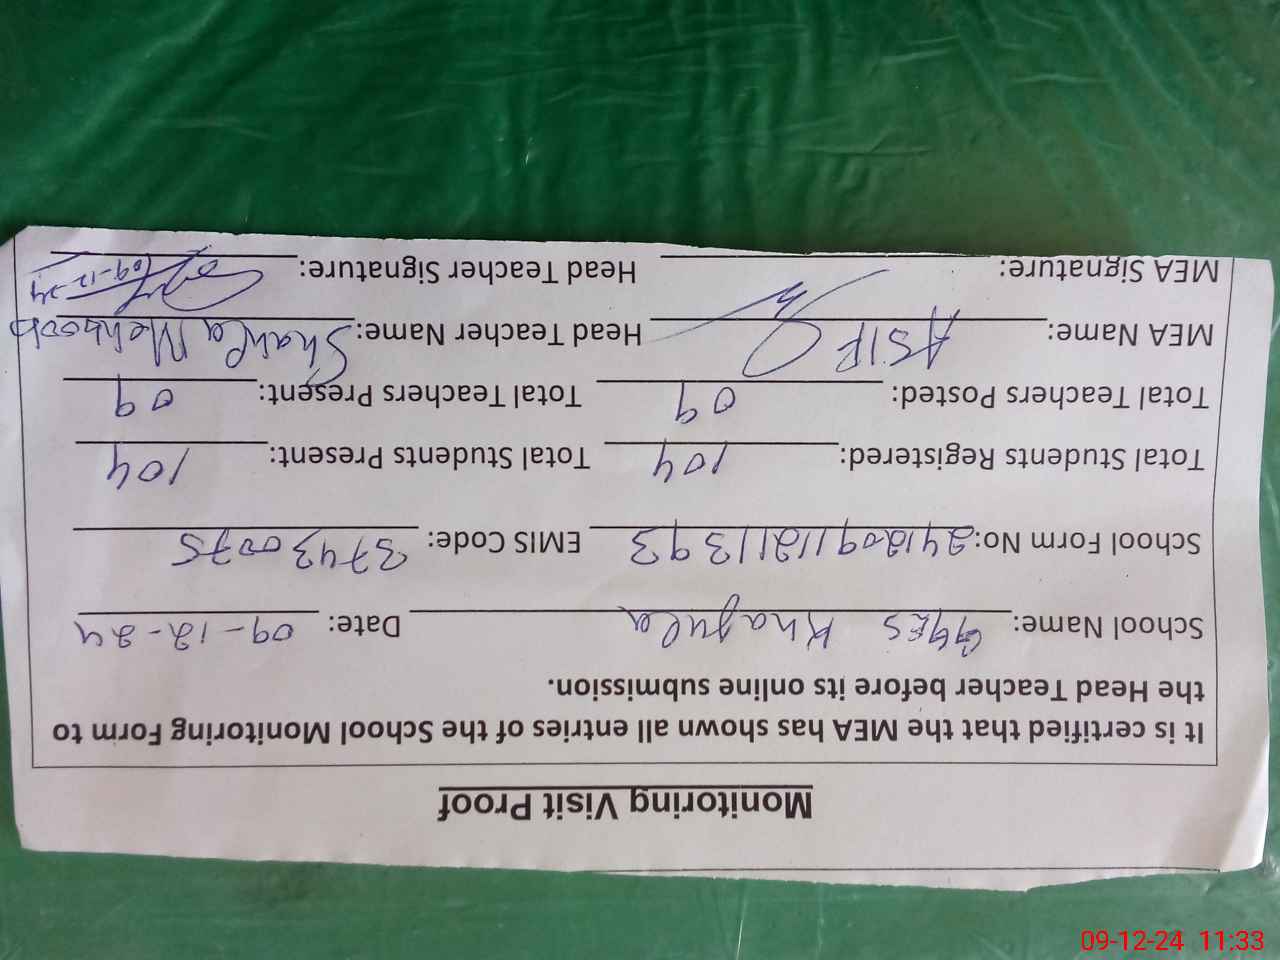 Monitoring Visit Proof
It is certified that the MEA has shown all entries of the School Monitoring Form to
the Head Teacher before its online submission.
School Name: GGES Khagula Date: 09-12-24
School Form No: 241209112111393 EMIS Code: 37430075
Total Students Registered: 104 Total Students Present: 104
Total Teachers Posted: 09 Total Teachers Present: 09
MEA Name: ASIF Head Teacher Name: Shaila Mehboob
MEA Signature: Head Teacher Signature: 09-12-24
09-12-24 11:33